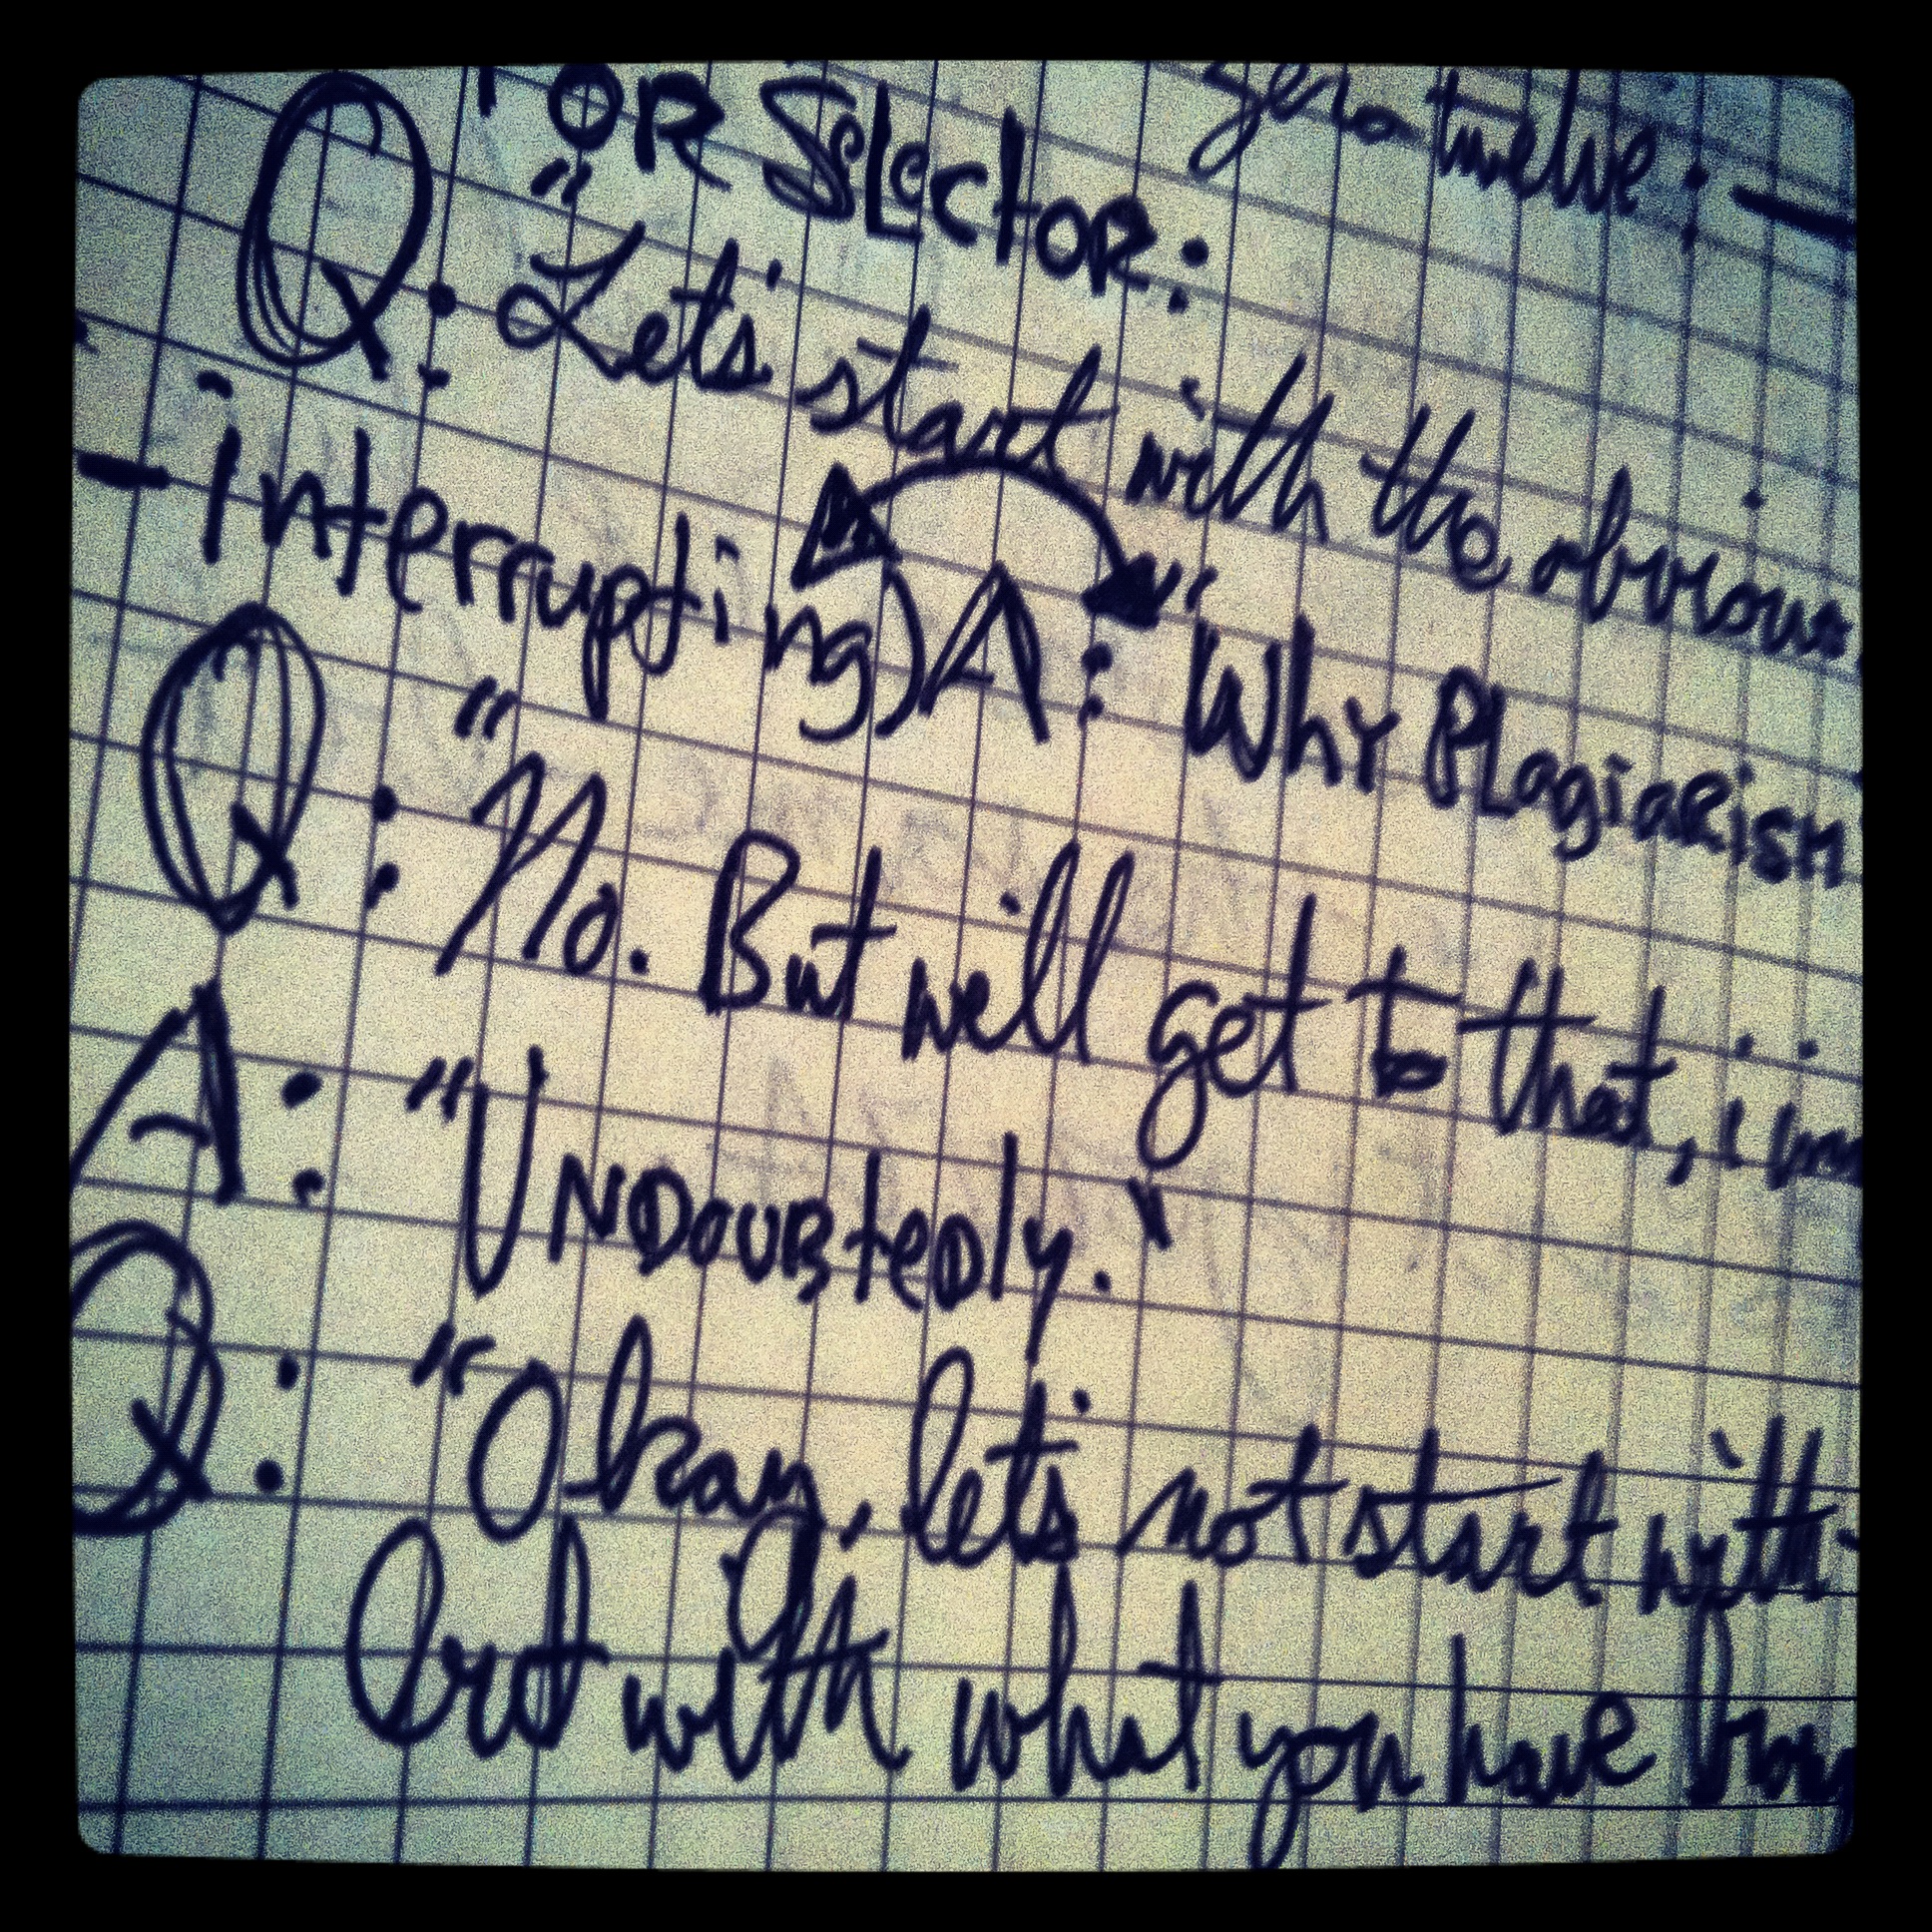 zero twelve. —
FOR SELECTOR:
Q: "Let's start with the obvious
-interrupting) A: "Why PLagiaRism
Q: "No. But we'll get to that, i
A: "UNDOUBtedly."
Q: "Okay, let's not start with
but with what you have